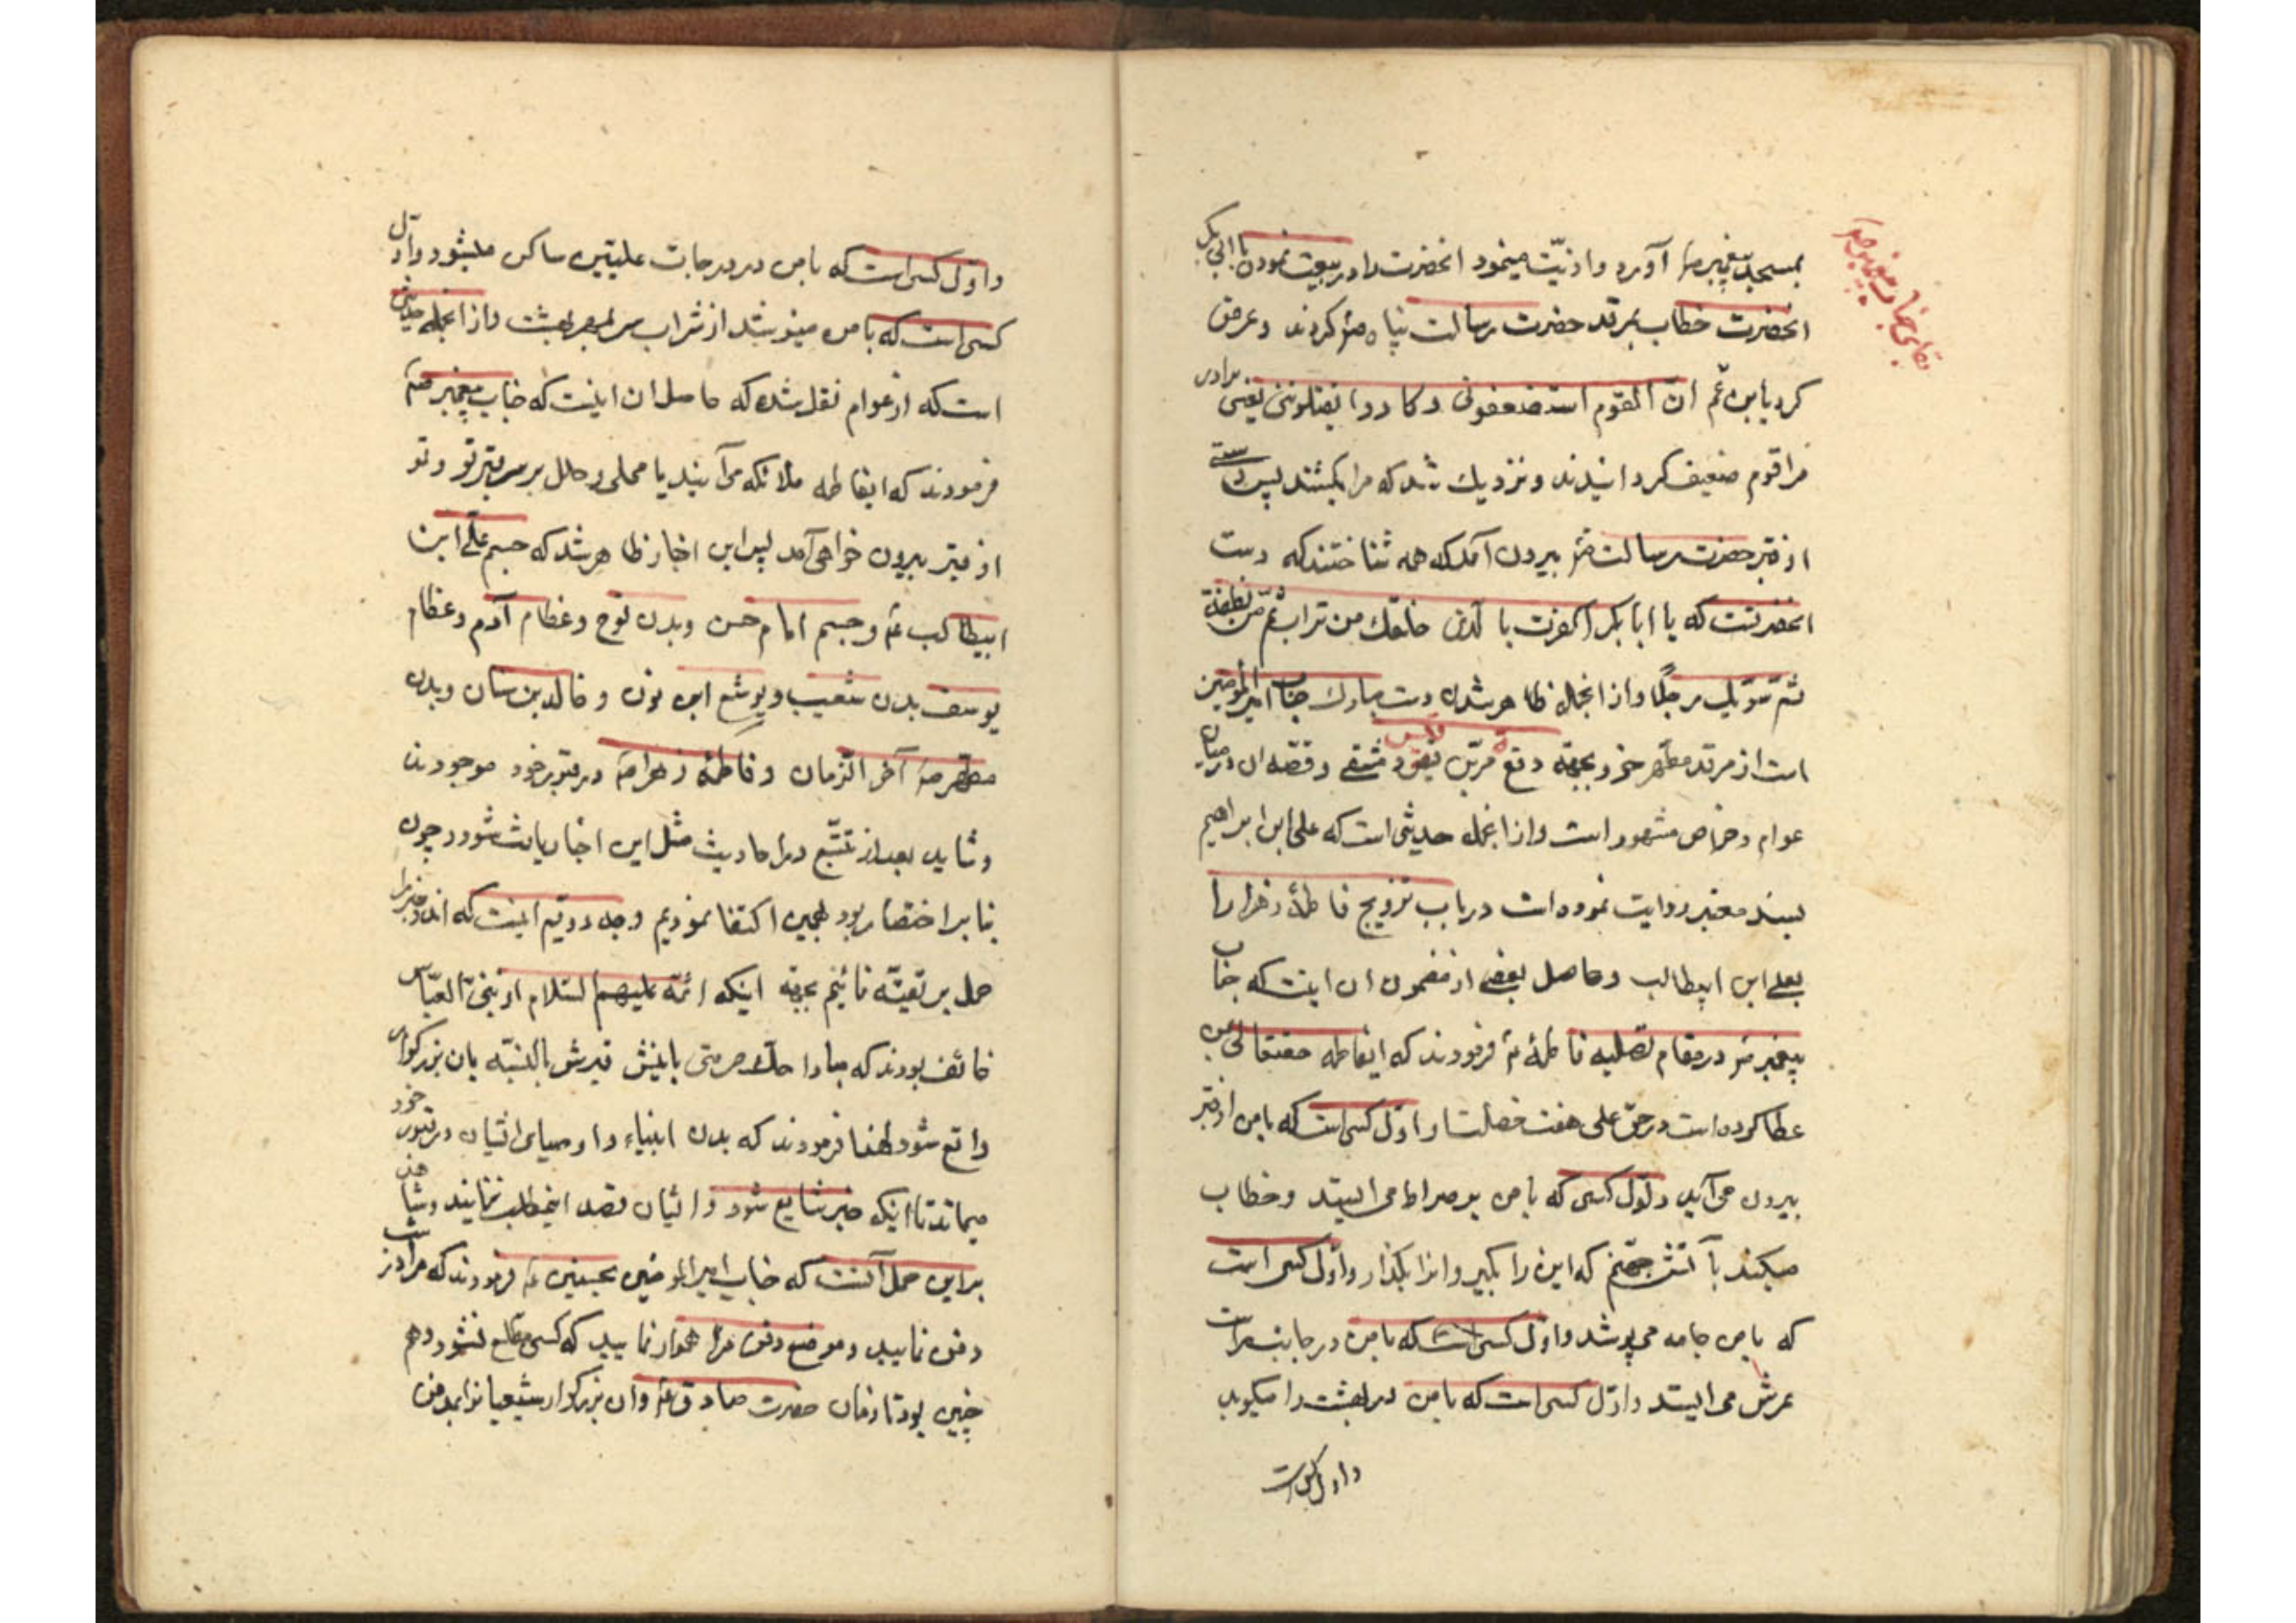 بمسجد پیغمبر ص آورد و اذیّت مینمود انحضرت را در بیعت نمودن با ابی بکر
انحضرت خطاب بمرقد حضرت رسالت پناه ص کردند و عرض
کرد یابن عم انّ القوم استضعفونی و کادوا یقتلوننی یعنی برادر
مرا قوم ضعیف کردانیدند و نزدیک شد که مرا بکشند پس دستی
از قبر حضرت رسالت ص بیرون آمد که همه شناختند که دست
انحضرتست که یا ابا بکر اکفرت بالذی خلقک من تراب ثم من نطفة
ثم سوّیک رجلًا و از انجمله ظاهر شدن دست مبارک جناب امیر المؤمنین
است از مرقد مطهر خود بجهة دفع مرّبن قیس و قصّه ان در میان
عوام و خواص مشهور است و از انجمله حدیثی است که علی ابن ابراهیم
بسند معتبر روایت نموده است در باب تزویج فاطمهٔ زهرا را
بعلی ابن ابیطالب و حاصل بعضی از مضمون ان اینست که جناب
پیغمبر ص در مقام تسلیه فاطمهٔ ع فرمودند که ایفاطمه حقتعالی بمن
عطا کرده است در حق علی هفت خصلت اوّل کسی است که با من از قبر
بیرون می آید و اول کسی که با من بر صراط می ایستد و خطاب
میکند بآتش جهنم که این را بکیر و انرا بکذار و اوّل کسی است
که با من جامه می پوشد و اوّل کسی است که با من در جانب راست
عرش می ایستد و اوّل کسی است که با من در بهشت را میکوبد
و اول کسی است
و اوّل کسی است که با من در درجات علیّین ساکن میشود و اوّل
کسی است که با من مینوشد از شراب سر بمهر بهشت و از انجمله حدیثی
است که از عوام نقل شده که حاصل ان اینست که جناب پیغمبر ص
فرمودند که ایفاطمه ملائکه می آیند با حلی و حلل بر سر قبر تو و تو
از قبر بیرون خواهی آمد پس از این اخبار ظاهر شد که جسم علی ابن
ابیطالب ع و جسم امام حسن و بدن نوح و عظام آدم و عظام
یوسف بدن شعیب و یوشع ابن نون و خالد بن سنان و بدن
مطهر ص آخر الزمان و فاطمهٔ زهرا ص در قبور خود موجودند
و شاید بعد از تتبّع در احادیث مثل این اخبار یافت شود و چون
بنا بر اختصار بود بهمین اکتفا نمودیم و وجه دویّم اینست که اند و خبر را
حمل بر تقیّه نمائیم بجهة اینکه ائمّه علیهم السّلام از بنی العبّاس
خائف بودند که مبادا هتک حرمتی بانبش قبرش بالنسبة بان بزرکوار
واقع شود لهذا فرمودند که بدن انبیاء و اوصیای ایشان در قبور خود
نمیماند تا اینکه خبر شایع شود و ایشان قصد اینمطلب ننمایند و شاهد
بر این حمل آنست که جناب امیر المؤمنین بحسنین ع فرمودند که مرا در شب
دفن نمایید و موضع دفن مرا هموار نمایید که کسی مطلع نشود و هم
چنین بود تا زمان حضرت صادق ع و ان بزرکوار شیعیانرا بمدفن